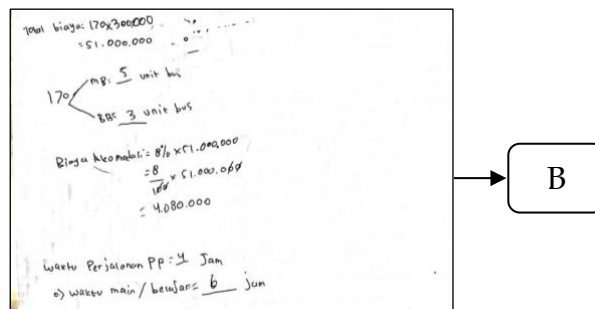 Total biaya: 170x300,000
= 51.000.000
170
MB: 5 unit bus
BB: 3 unit bus
Biaya Akomodasi = 8% x 51.000,000
= 8/100 x 51.000.000
= 4.080.000
waktu Perjalanan PP: 4 Jam
o) waktu main / belajar = 6 jam
B